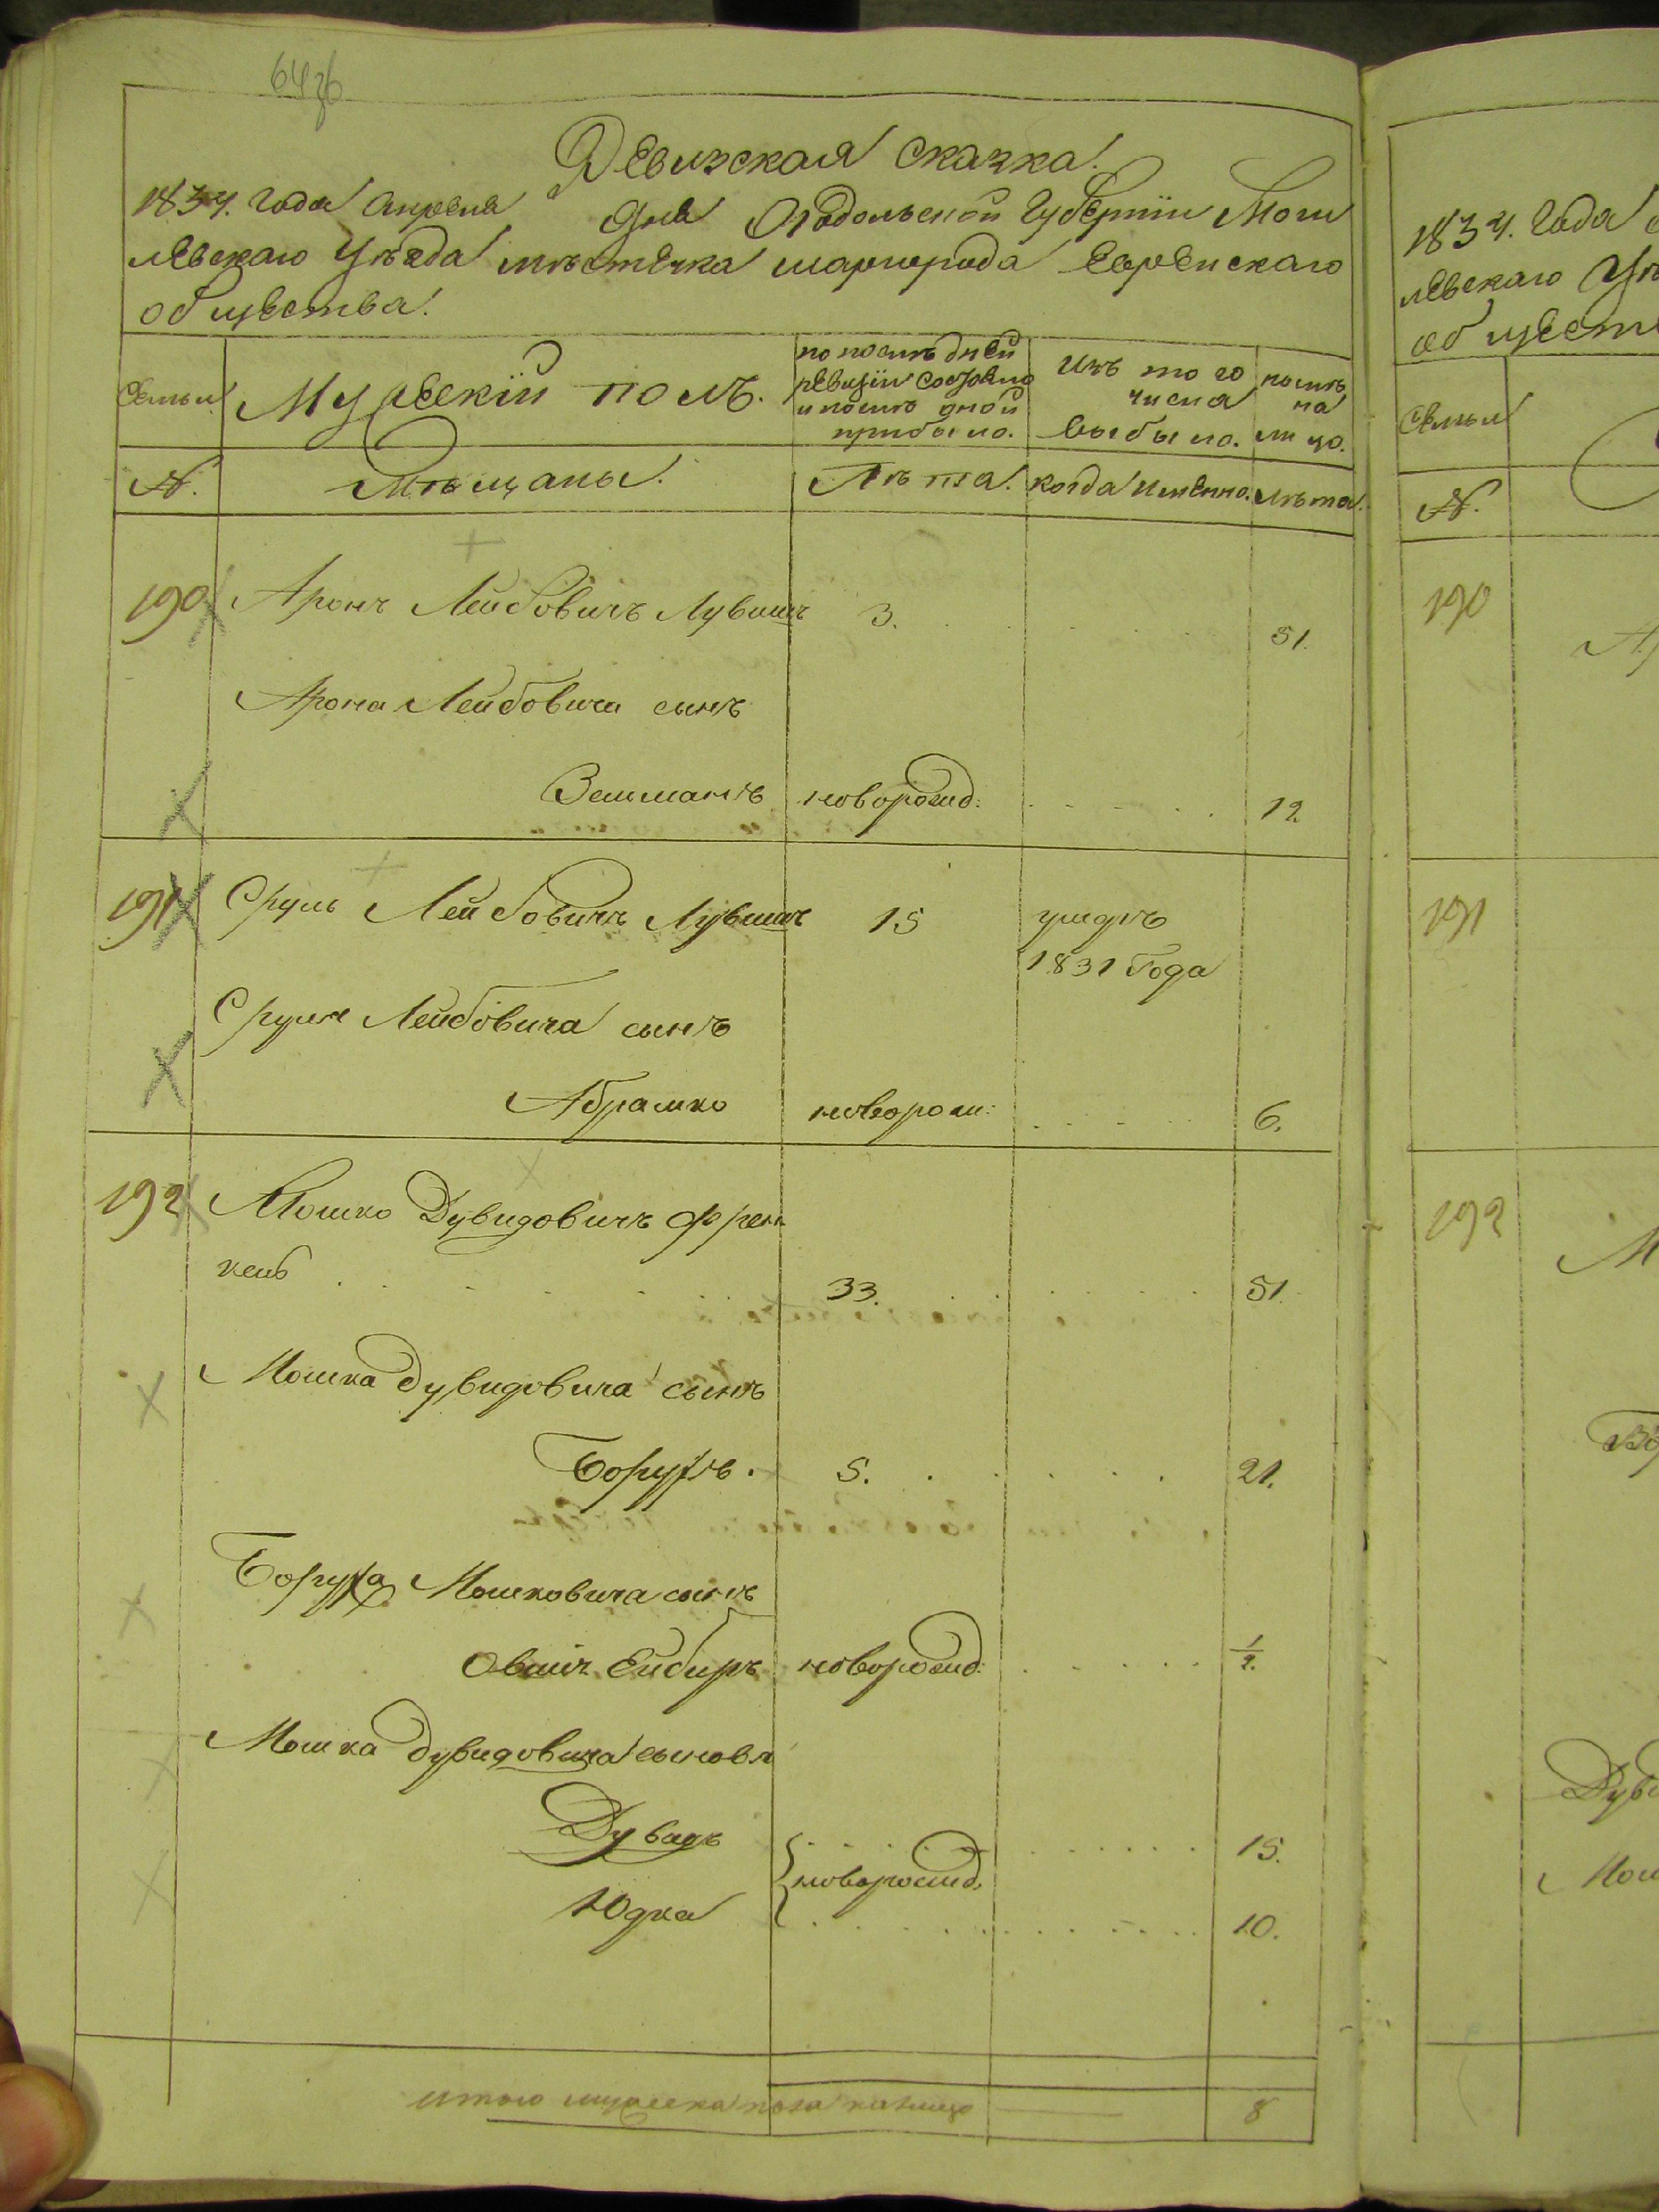 Ревизская сказка.
1834. года апреля дня Подольской Губернiи Моги
левскаго Уѣзда мѣстечка шаргорода Еврейскаго
общества.
Семьи Мужескiй полъ. по послѣдней ревизiи состояло и послѣ оной прибыло. Изъ того числа выбыло. нынѣ на лицо.
№. Мѣщаны. Лѣта. когда именно. лѣта.
190 Аронъ Лейбовичъ 3. 51.
Арона Лейбовича сынъ
Зельманъ новорожд: 12
191 Сруль Лейбовичъ 15 умеръ
1831 Года
Сруля Лейбовича сынъ
Абрамко новорож: 6.
192 Мошко Дувидовичъ Френ
кель 33. 51.
Мошка Дувидовича сынъ
Борухъ. 5. 21.
Боруха Мошковича сынъ
новорожд: 1/2.
Мошка Дувидовича сыновя
Дувидъ 15.
новорожд:
Юдка 10.
итого мужеска пола на лицо 8
1834. Года
левскаго
общест
Семьи
№.
190
191
192